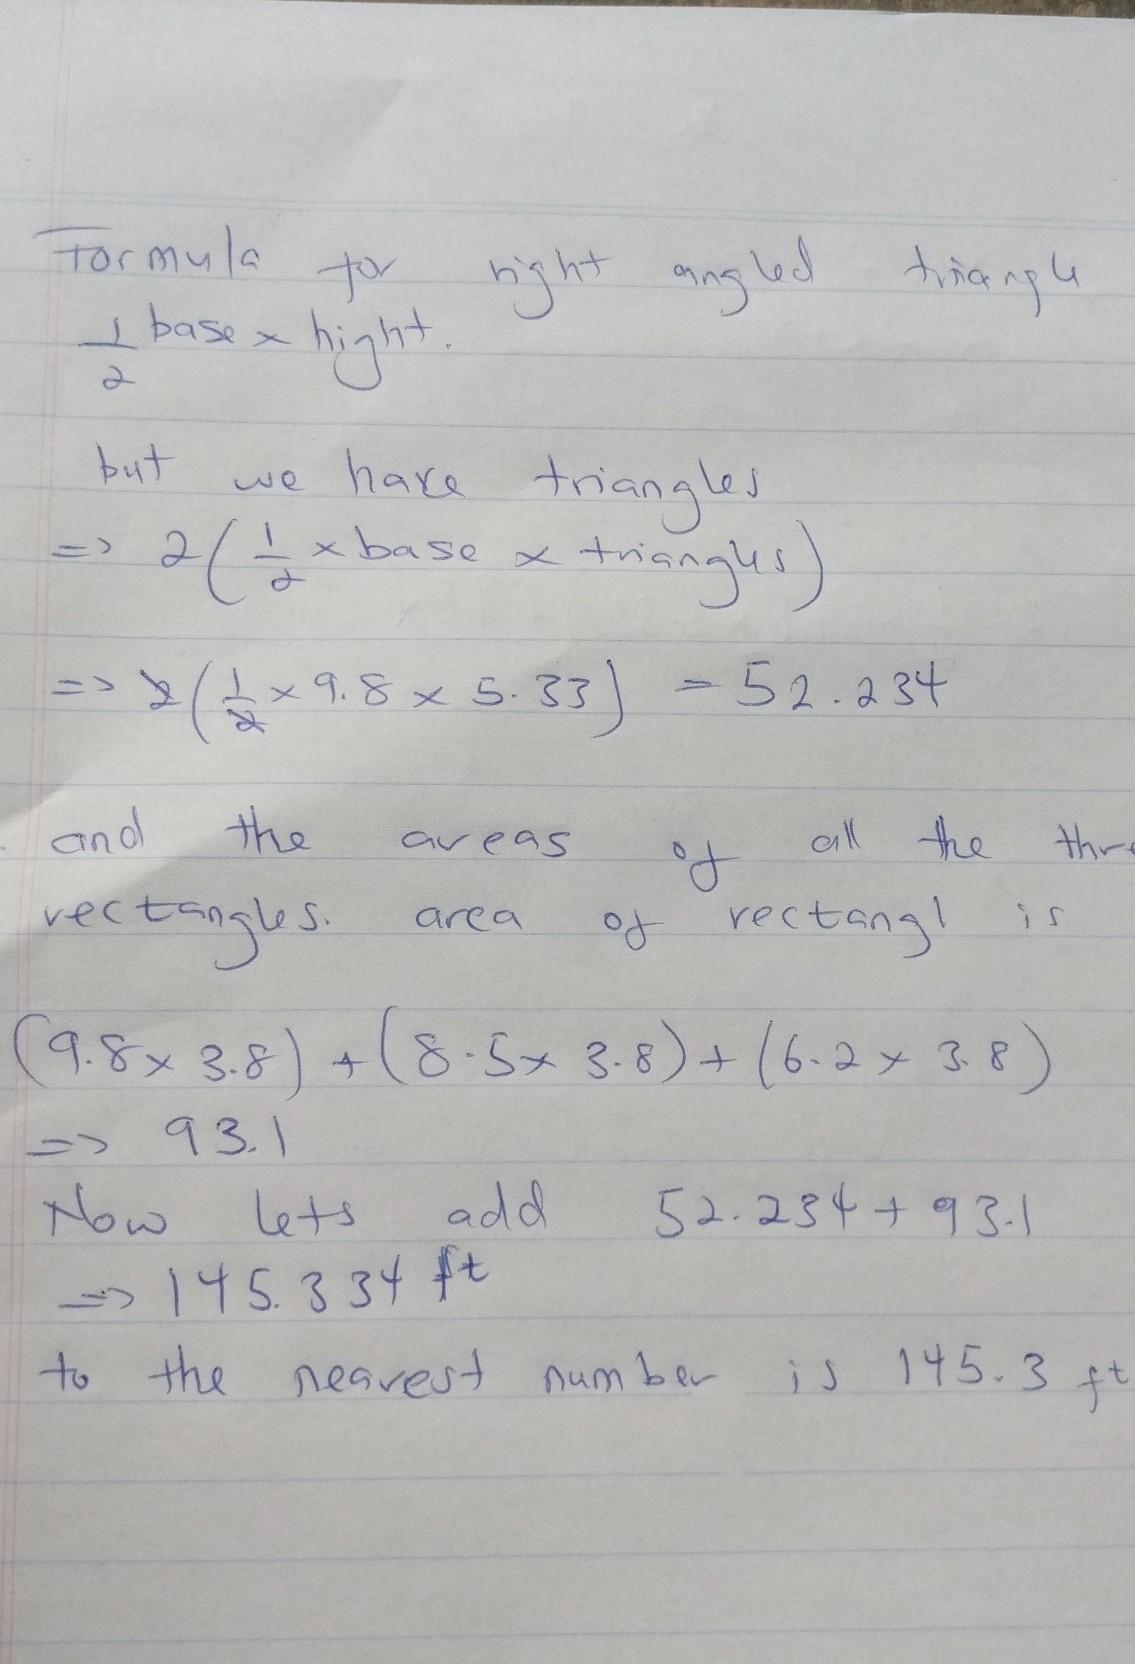 Formula for right angled triangle
1/2 base x hight.
but we have triangles
=> 2(1/2 x base x triangles)
=> 2(1/2 x 9.8 x 5.33) = 52.234
and the areas of all the thre
rectangles. area of rectangl is
(9.8x 3.8) + (8.5x 3.8) + (6.2 x 3.8)
=> 93.1
Now lets add 52.234 + 93.1
=> 145.334 ft
to the nearest number is 145.3 ft